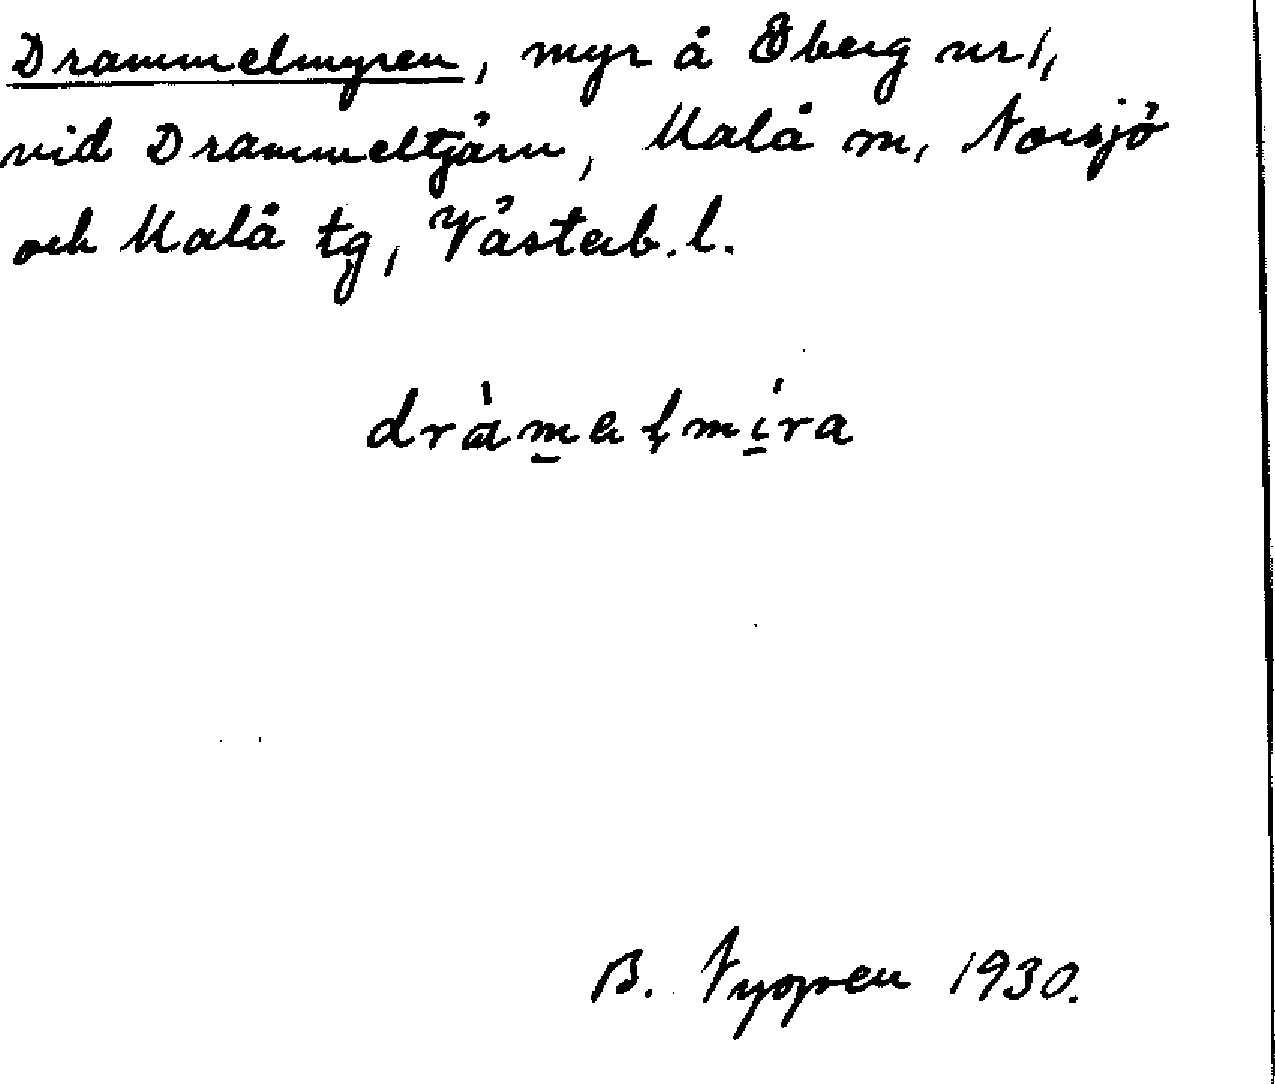 Drammelmyren, myr å Öberg nr 1,
vid Drammeltjärn, Malå m, Norsjö
och Malå tg, Västerb. l.
B. 1930.